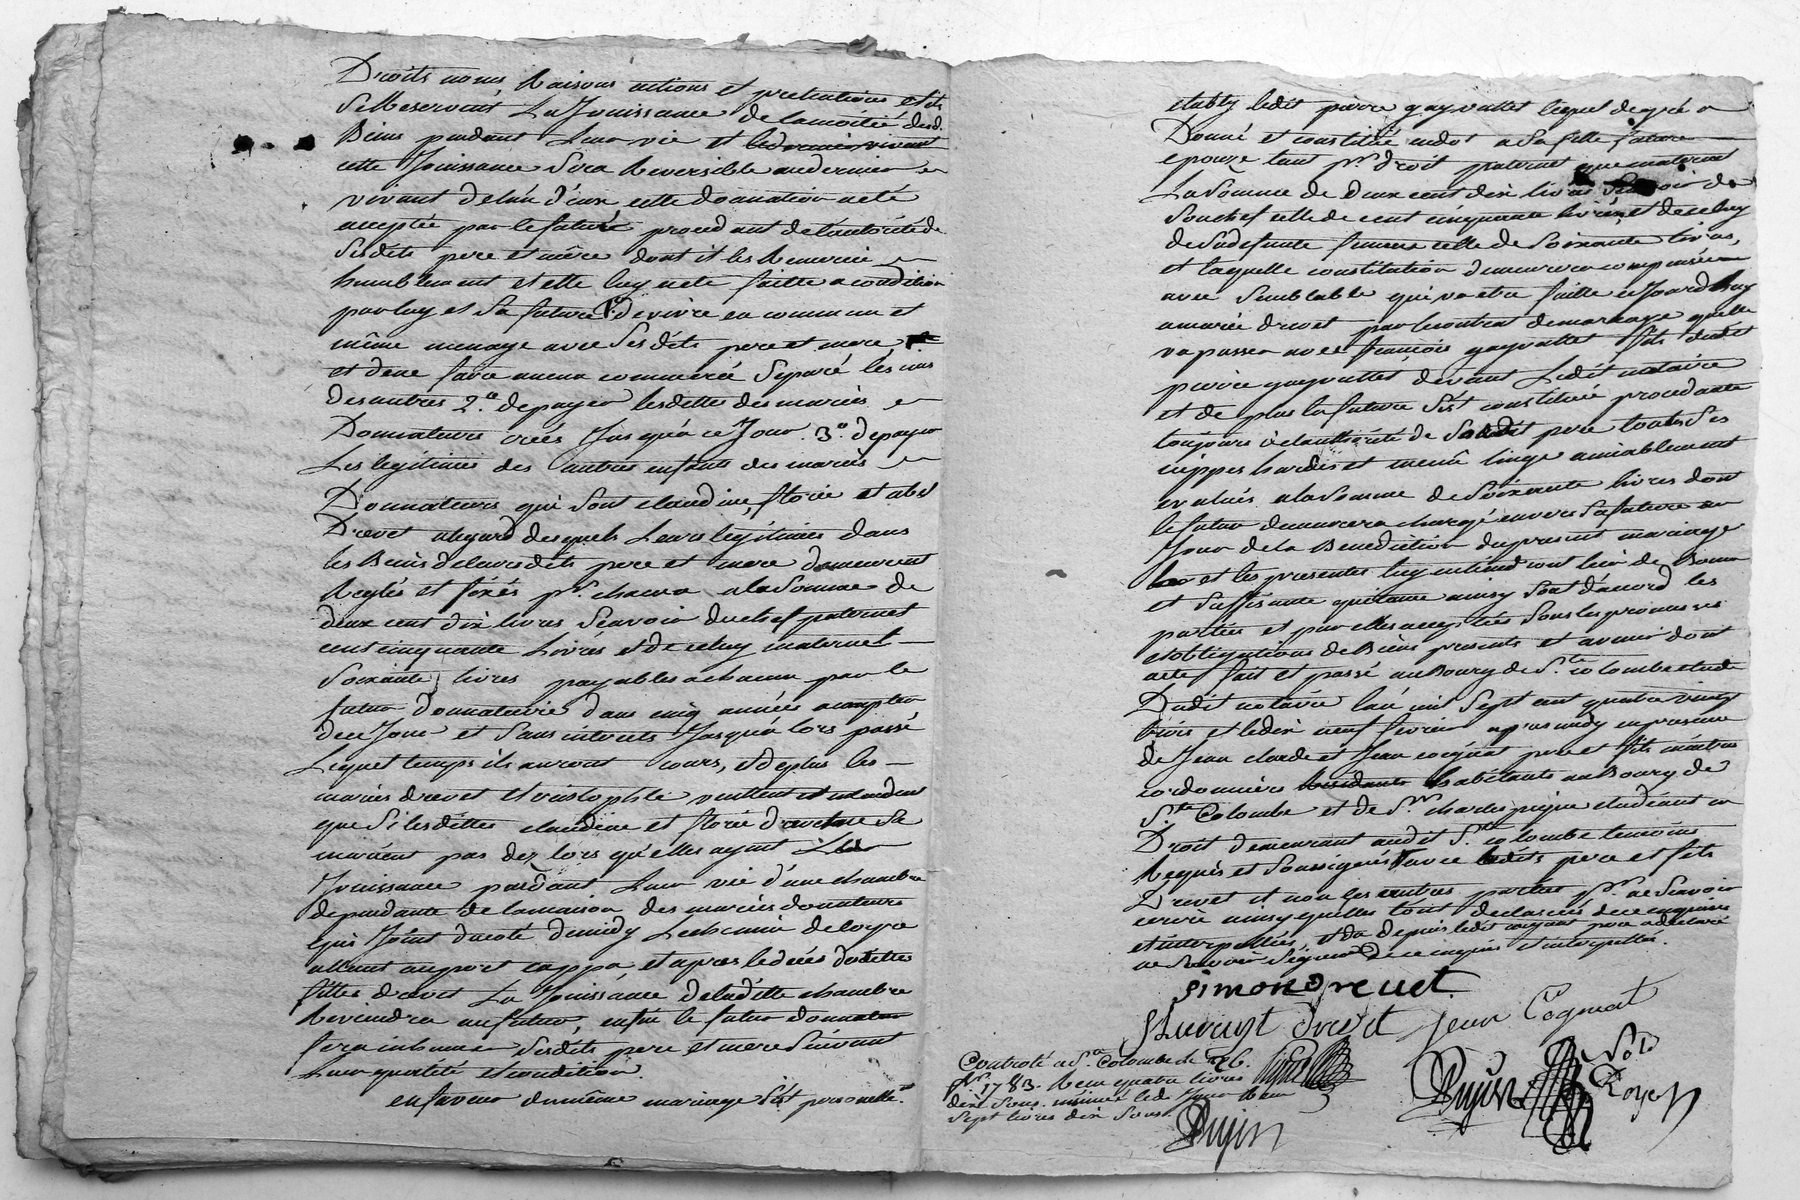 Droits noms Raisons actions et pretentions et ils
Se Reservent La Jouissance de la moitié desd.
Biens pendant Leur vie et le dernier vivant
cette Jouissance Sera Reversible au dernier
vivant delun d'eux cette donnation a eté
acceptée par le futur procedant de lautorité de
Sesdits pere et mère dont il les Remercie
humblement et elle luy a eté faitte a condition
par luy et Sa future 1° de vivre en commun et
même menage avec Sesdits pere et mere
et dene faire aucun commerce Separé les uns
des autres 2.° de payer les dettes des mariés
Donnateurs créés Jusqu'a ce Jour 3.° de payer
Les legitimes des autres enfants des mariés
Donnateurs qui Sont claudine, florie et abel
Drevet alegard desquels Leurs legitimes dans
les Biens de leursdits pere et mere demeurent
Reglés et fixés pr. chacun a la Somme de
deux cent dix livres Scavoir du chef paternel
cent cinquante Livres et de celuy maternel
Soixante livres payables a chacun par le
futur donnataire dans cinq années a compter
de ce Jour et Sans interets Jusqu'a lors passé
Lequel temps ils auront cours, et de plus les
mariés drevet et veulent et entendent
que Si lesdittes claudine et florie drevet ne Se
marient pas dez lors qu'elles ayent La
Jouissance pendant Leur vie d'une chambre
dependante de la maison des mariés donnateurs
qui Joint du coté de midy Le chemin de
allant au et apres le decés desdittes
filles drevet La Jouissance de laditte chambre
Reviendra au futur, enfin le futur donnataire
fera inhumer Sesdits pere et mere Suivant
Leur qualité et condition.
en faveur du même mariage S'est personelle.t
etably ledit pierre gayvallet lequel de gré a
Donné et constitué en dot a Sa fille future
epouze tant pr. droit paternel que maternel
La Somme de deux cent dix livres Scavoir de
Son chef celle de cent cinquante livres, et de celuy
de Sa defunte femme celle de Soixante livres,
et laquelle constitution demeurera compensée
avec Semblable qui va etre faitte cejourd'huy
a marie drevet par le contrat de mariage quelle
va passer avec françois gayvallet fils dudit
pierre gayvallet devant Ledit notaire
et de plus la future S'est constituée procedante
toujours de lauthorité de Sondit pere toutes Ses
nippes hardes et menû linge amiablement
evalués a la Somme de Soixante livres dont
le futur demeurera chargé envers Sa future au
Jour de la Benediction du present mariage
et les presentes luy en tiendront lieu de Bonne
et Suffisante quittance ainsy Sont d'acord les
parties et par elles acceptées Sous les promesses
obligations de Biens presents et avenir dont
acte fait et passé au Bourg de S.te colombe etude
Dudit notaire L'an mil Sept cent quatre vingt
trois et le dix neuf fevrier apres midy en presence
de Jean claude et Jean cognat pere et fils maitres
cordonniers habitants au Bourg de
S.te Colombe et de S.r charles pujin etudiant en
Droit demeurant audit S.te colombe temoins
Requis et Soussignés avec lesdits pere et fils
Drevet et non les autres parties pr. ne Scavoir
ecrire ainsy qu'elles l'ont declaré de ce enquises
et interpellées, et du depuis ledit cognat pere a declaré
ne Scavoir Signer de ce enquis et interpellé.
simon Drevet
drevet Jean Cognat
Controlé a S.te Colombe le 26.
fr. 1783. Reçu quatre livres
dix Sous. led. Jour Reçu
Sept livres dix Sous
Pujin
Pujin
Pujin
Not.
Royer